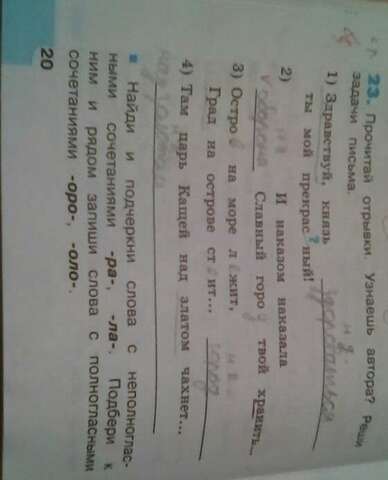 23. Прочитай отрывки. Узнаешь автора? Реши
задачи письма.
1) Здравствуй, князь
ты мой прекрас?ный!
2) И наказом наказала
Славный горо твой хранить
3) Остро в на море л жит,
Град на острове ст ит... город
4) Там царь Кащей над златом чахнет...
Найди и подчеркни слова с неполноглас-
ными сочетаниями -ра-, -ла-. Подбери к
ним и рядом запиши слова с полногласными
сочетаниями -оро-, -оло-.
20